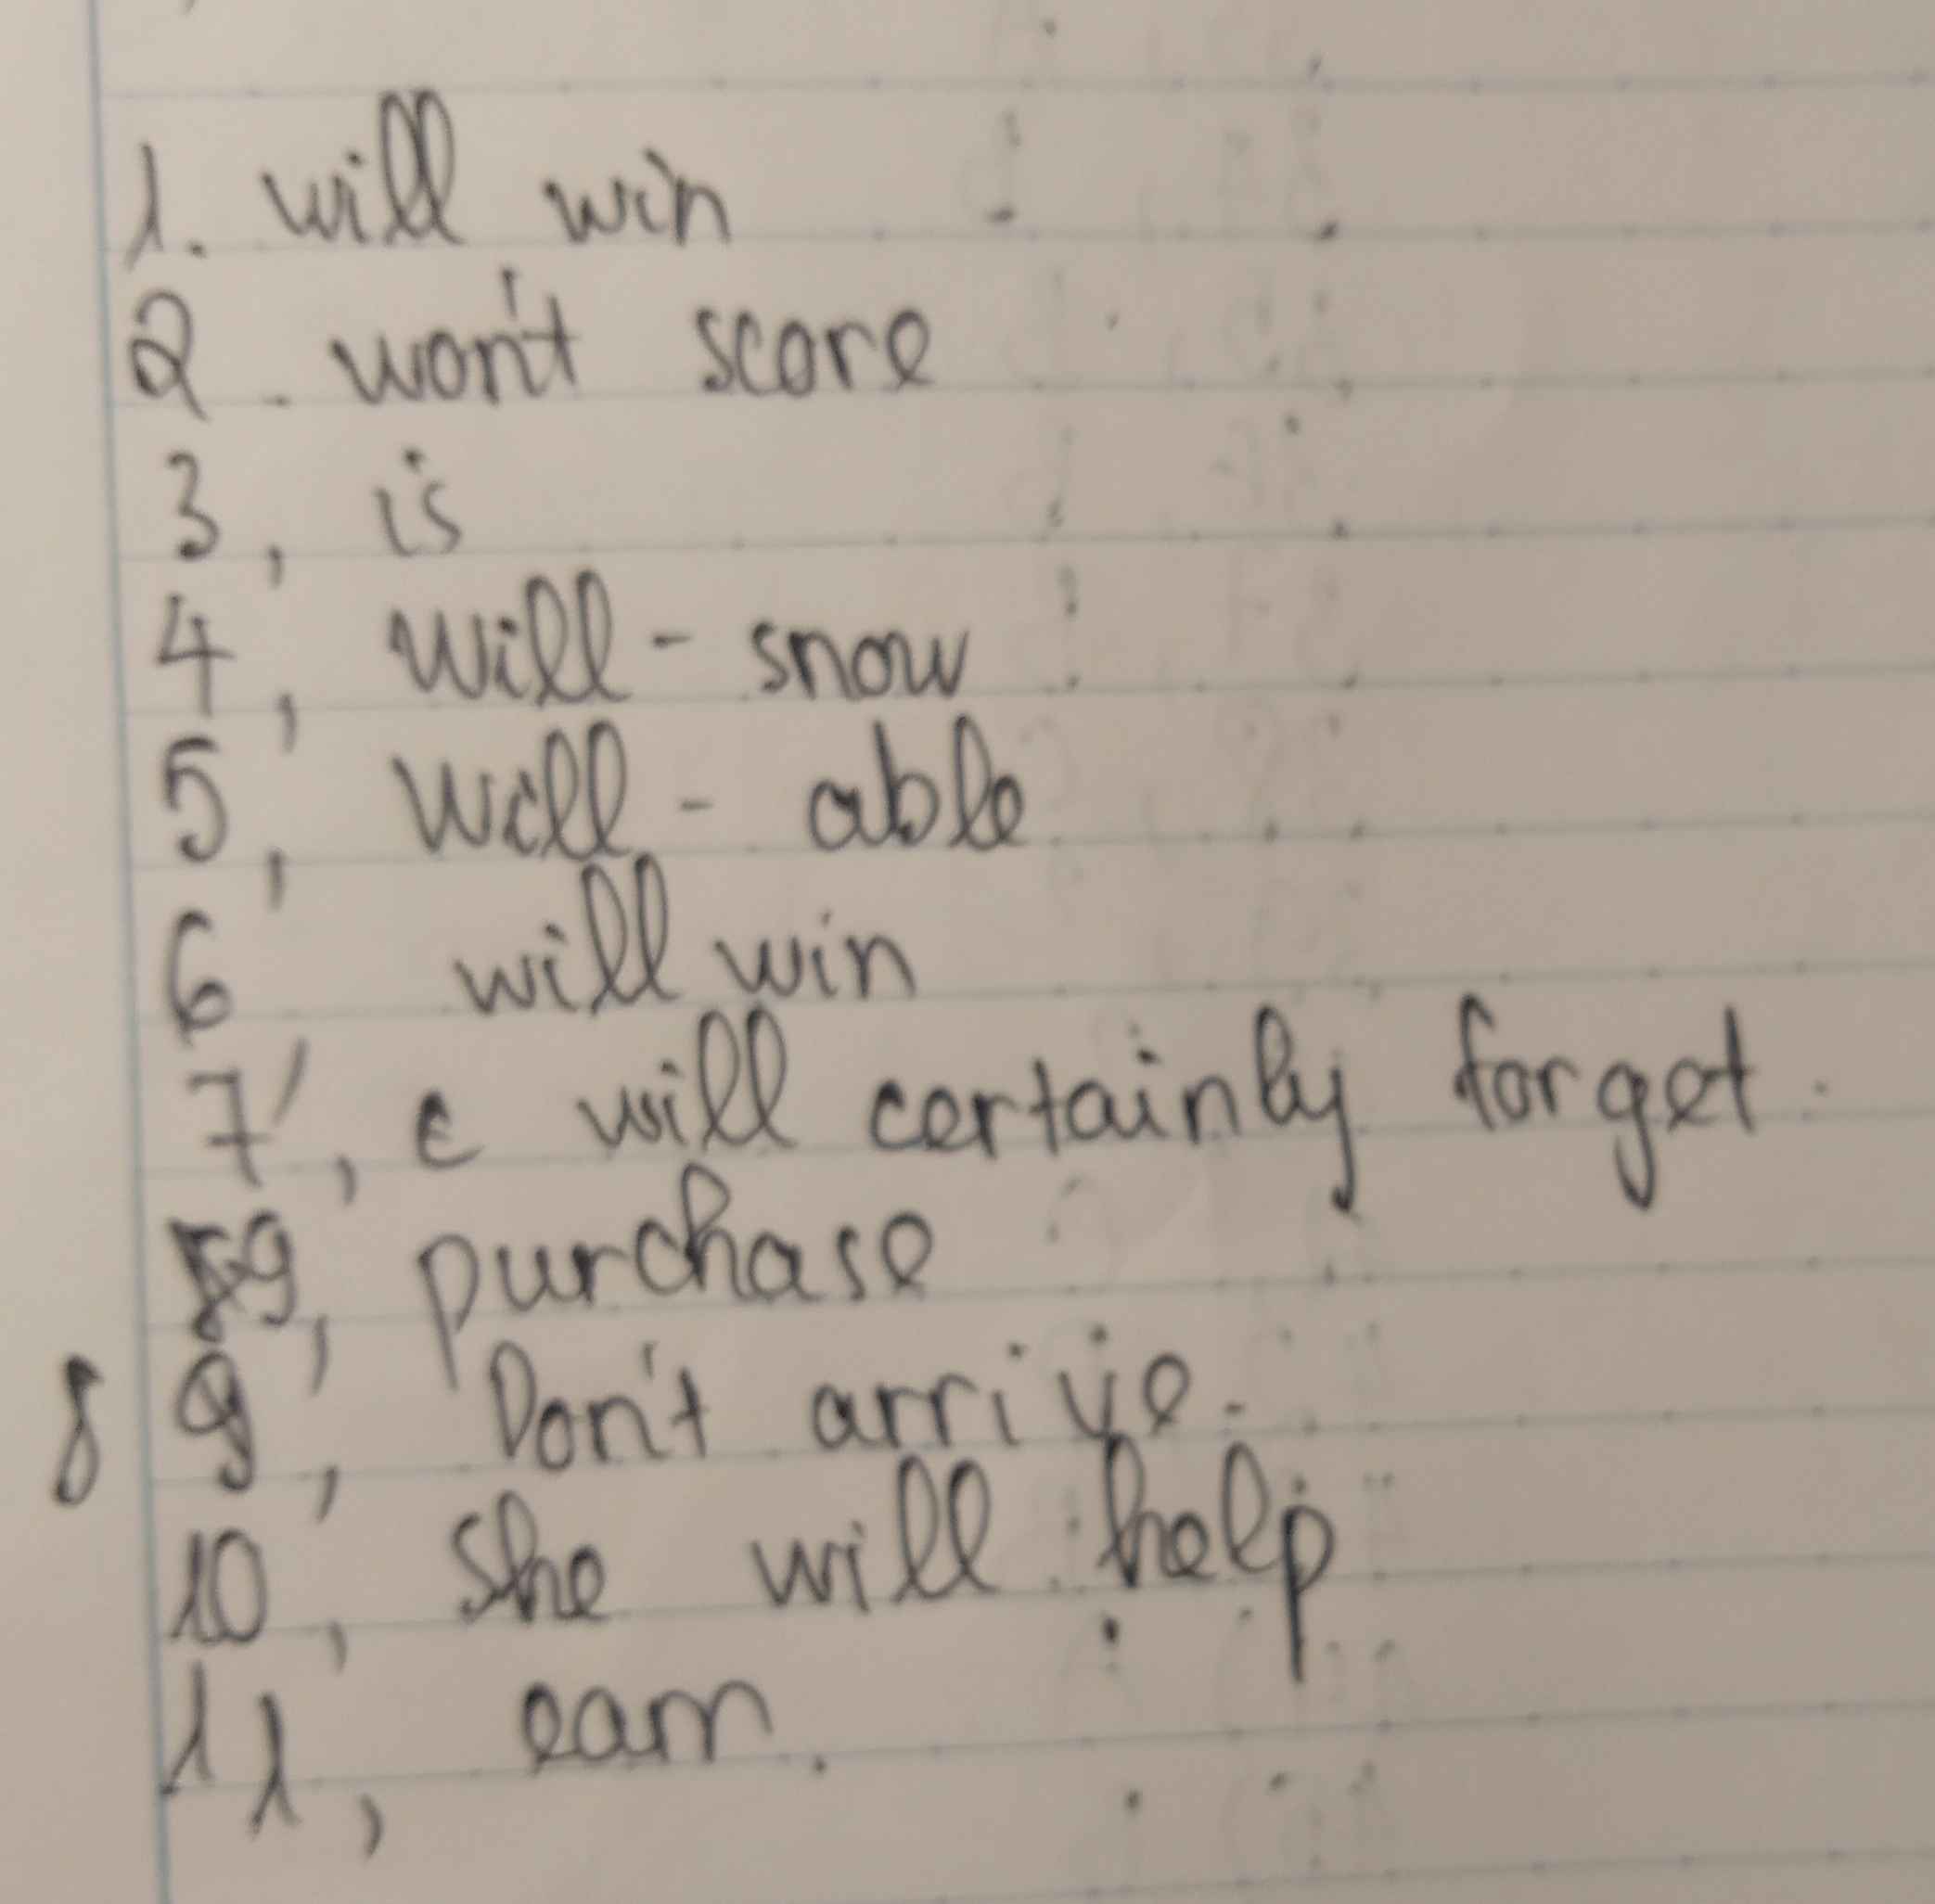 1. will win
2. won't score
3, is
4, will - snow
5, will - able
6 will win
7, c will certainly forget.
9, purchase
8 9, Don't arrive.
10, She will help
11, earn.